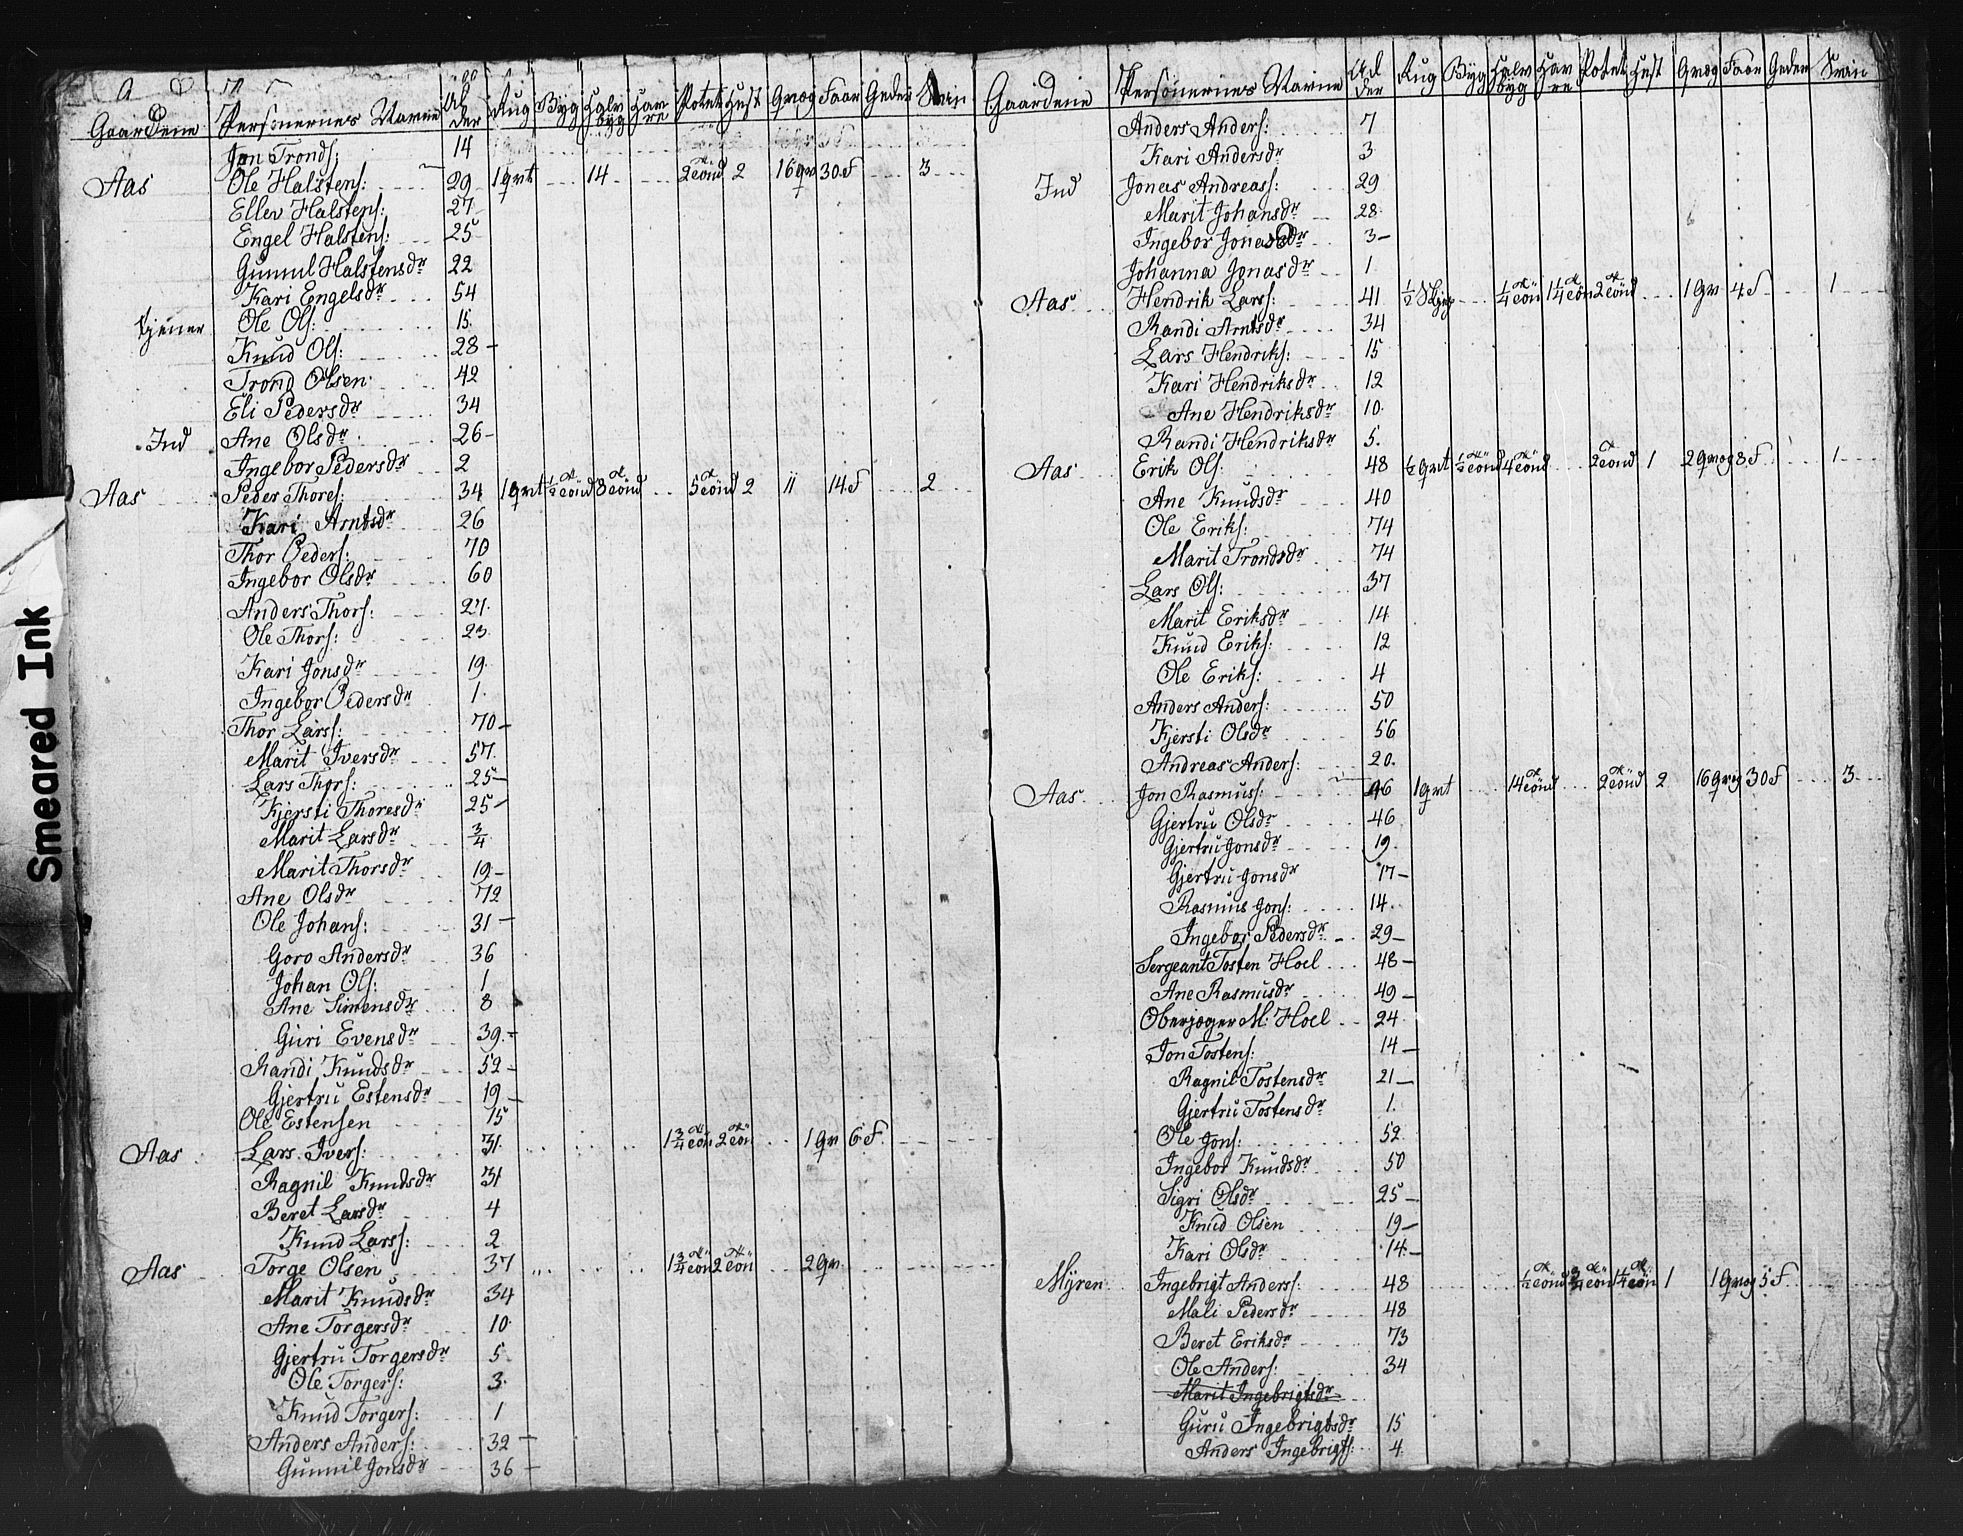 Gaardene Personernes Navne Al der Rug Byg Halv byg Hav re Potet Hest Qvæg Faar Geder Svin
Jon Tronds: 14
Aas Ole Halstens: 29 1 qvt 14 2 tönd 2 16 qv 30 f 3
Ellev Halstens: 27
Engel Halstens: 25
Gunnil Halstensdr 22
Kari Engelsdr 54
tjener Ole Ols: 15
Knud Ols: 28
Trond Olsen 42
Eli Pedersdr 34
Ind Ane Olsdr 26
Ingebor Pedersdr 2
Aas Peder Thores: 34 1 qvt 1/2 tönd 8 tönd 5 tönd 2 11 14 f 2
Kari Arntsdr 26
Thor Peders: 70
Ingebor Olsdr 60
Anders Thors: 27
Ole Thors: 23
Kari Jonsdr 19
Ingebor Pedersdr 1
Thor Larss: 70
Marit Iversdr 57
Lars Thors: 25
Kjersti Thoresdr 25
Marit Larsdr 3/4
Marit Thorsdr 19
Ane Olsdr 72
Ole Johans: 31
Goro Andersdr 36
Johan Ols: 1
Ane Simensdr 8
Guri Evensdr 39
Randi Knudsdr 52
Gjertru Estensdr 19
Ole Estensen 15
Aas Lars Ivers: 31 1 3/4 tön 2 tön 1 qv 6 f
Ragnil Knudsdr 31
Beret Larsdr 4
Knud Larss: 2
Aas Torge Olsen 37 1 3/4 tön 2 tön 2 qv
Marit Knudsdr 34
Ane Torgersdr 10
Gjertru Torgersdr 5
Ole Torgers: 3
Knud Torgers: 1
Anders Anders: 32
Gunnil Jonsdr 36
Gaardene Personernes Navne Al der Rug Byg Halv byg Hav re Potet Hest Qvæg Faar Geder Svin
Anders Anders: 7
Kari Andersdr 3
Ind Jonas Andreass: 29
Marit Johansdr 28
Ingebor Jonasdr 3
Johanna Jonasdr 1
Aas Hendrik Larss: 41 1/2 Skjep 1/4 tön 1 1/4 tön 2 tönd 1 qv 4 f 1
Randi Arntsdr 34
Lars Hendriks: 15
Kari Hendriksdr 12
Ane Hendriksdr 10
Randi Hendriksdr 5
Aas Erik Ols: 48 1/2 qvt 1/2 tönd 4 tönd 2 tönd 1 2 qvæg 8 f 1
Ane Knudsdr 40
Ole Eriks: 74
Marit Trondsdr 74
Lars Ols: 37
Marit Eriksdr 14
Knud Eriks: 12
Ole Eriks: 4
Anders Anders: 50
Kjersti Olsdr 56
Andreas Anders: 20
Aas Jon Rasmuss: 46 1 qvt 14 tönd 2 tönd 2 16 qvæg 30 f 3
Gjertru Olsdr 46
Gjertru Jonsdr 19
Gjertru Jonsdr 17
Rasmus Jons: 14
Ingebor Pedersdr 29
Sergeant Tosten Hoel 48
Ane Rasmusdr 49
Oberjæger M: Hoel 24
Jon Tostens: 14
Ragnil Tostensdr 21
Gjertru Tostensdr 1
Ole Jons: 52
Ingebor Knudsdr 50
Sigri Olsdr 25
Knud Olsen 19
Kari Olsdr 14
Myren Ingebrigt Anders: 48 1/2 tönd 3/4 tönd 1 1/4 tön 1 1 qvæg 5 f
Mali Pedersdr 48
Beret Eriksdr 73
Ole Anders: 34
Marit Ingebrigtsdr
Guru Ingebrigtsdr 15
Anders Ingebrigts: 4
Smeared Ink